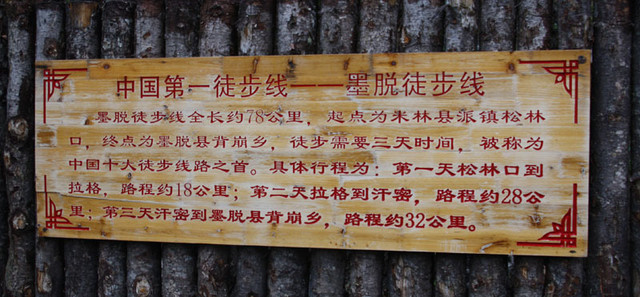 中国第一徒步线——墨脱徒步线
墨脱徒步线全长约78公里，起点为米林县派镇松林
口，终点为墨脱县背崩乡，徒步需要三天时间，被称为
中国十大徒步线路之首。具体行程为：第一天松林口到
拉格，路程约18公里；第二天拉格到汗密，路程约28公
里；第三天汗密到墨脱县背崩乡，路程约32公里。